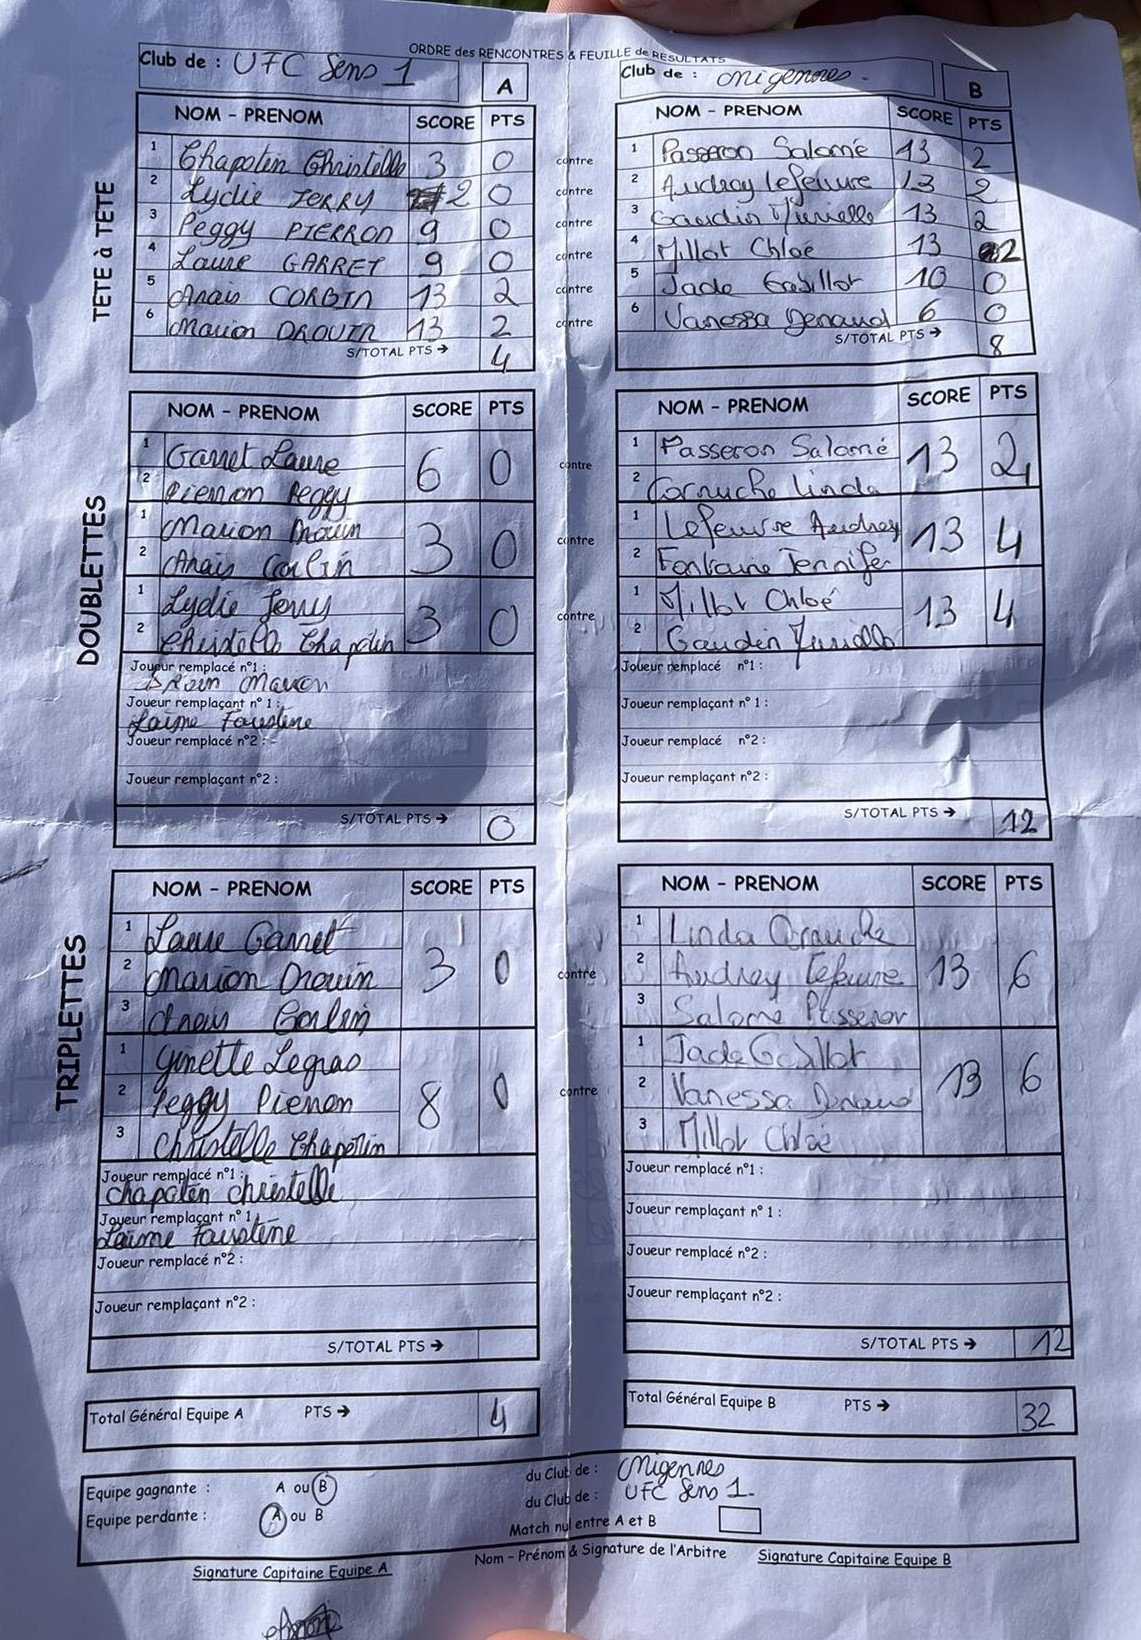 ORDRE des RENCONTRES & FEUILLE de RESULTATS
Club de : UFC Sens 1 A
NOM - PRENOM SCORE PTS
TETE à TETE
1 Chapotin Christelle 3 0
2 Lydie JERRY 2 0
3 Peggy PIERRON 9 0
4 Laure GARRET 9 0
5 Anais CORBIN 13 2
6 Marion DROUIN 13 2
S/TOTAL PTS → 4
contre
contre
contre
contre
contre
contre
Club de : Migennes. B
NOM - PRENOM SCORE PTS
1 Passeron Salomé 13 2
2 Audrey Lefeuvre 13 2
3 Gaudin Murielle 13 2
4 Millot Chloé 13 2
5 Jade Gabillot 10 0
6 Vanessa Denaud 6 0
S/TOTAL PTS → 8
DOUBLETTES
NOM - PRENOM SCORE PTS
1 Garret Laure 6 0
2 Pierron Peggy
1 Marion Drouin 3 0
2 Anais Corbin
1 Lydie Jerry 3 0
2 Christelle Chapotin
Joueur remplacé n°1 :
Drouin Marion
Joueur remplaçant n° 1 :
Laime Faustine
Joueur remplacé n°2 :
Joueur remplaçant n°2 :
S/TOTAL PTS → 0
contre
contre
contre
NOM - PRENOM SCORE PTS
1 Passeron Salomé 13 2
2 Cornuche Linda
1 Lefeuvre Audrey 13 4
2 Fontaine Jennifer
1 Millot Chloé 13 4
2 Gaudin Murielle
Joueur remplacé n°1 :
Joueur remplaçant n° 1 :
Joueur remplacé n°2 :
Joueur remplaçant n°2 :
S/TOTAL PTS → 12
TRIPLETTES
NOM - PRENOM SCORE PTS
1 Laure Garret 3 0
2 Marion Drouin
3 Anais Corbin
1 Ginette Legras 8 0
2 Peggy Pierron
3 Christelle Chapotin
Joueur remplacé n°1 :
Chapotin Christelle
Joueur remplaçant n° 1
Laime Faustine
Joueur remplacé n°2 :
Joueur remplaçant n°2 :
S/TOTAL PTS →
contre
contre
NOM - PRENOM SCORE PTS
1 Linda 13 6
2 Audrey Lefeuvre
3 Salome Passeron
1 Jade Gabillot 13 6
2 Vanessa Denaud
3 Millot Chloé
Joueur remplacé n°1 :
Joueur remplaçant n° 1 :
Joueur remplacé n°2 :
Joueur remplaçant n°2 :
S/TOTAL PTS → 12
Total Général Equipe A PTS → 4
Total Général Equipe B PTS → 32
Equipe gagnante : A ou B du Club de : Migennes
Equipe perdante : A ou B du Club de : UFC Sens 1.
Match nul entre A et B
Signature Capitaine Equipe A
Nom - Prénom & Signature de l'Arbitre
Signature Capitaine Equipe B